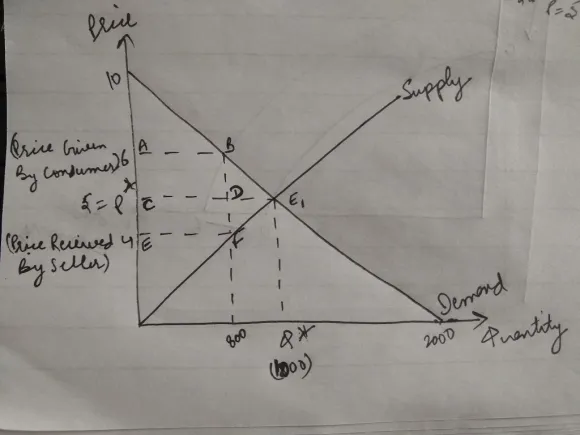 P = 5
Price
10
Supply
(Price Given
By Consumer) 6 A B
5 = P* C D E1
(Price Received 4 E F
By Seller)
Demand
800 Q* 2000 Quantity
(1000)